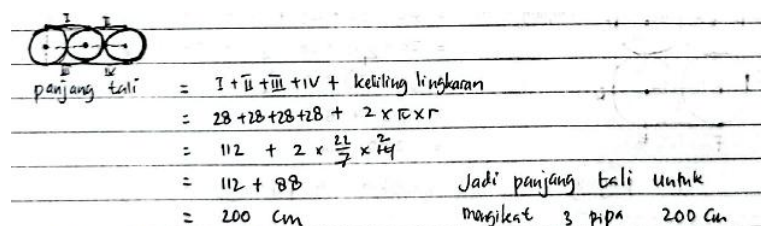 I II
III IV
panjang tali = I + II + III + IV + keliling lingkaran
= 28 + 28 + 28 + 28 + 2 x π x r
= 112 + 2 x 22/7 x 14 2
= 112 + 88 Jadi panjang tali untuk
= 200 cm mengikat 3 pipa 200 cm